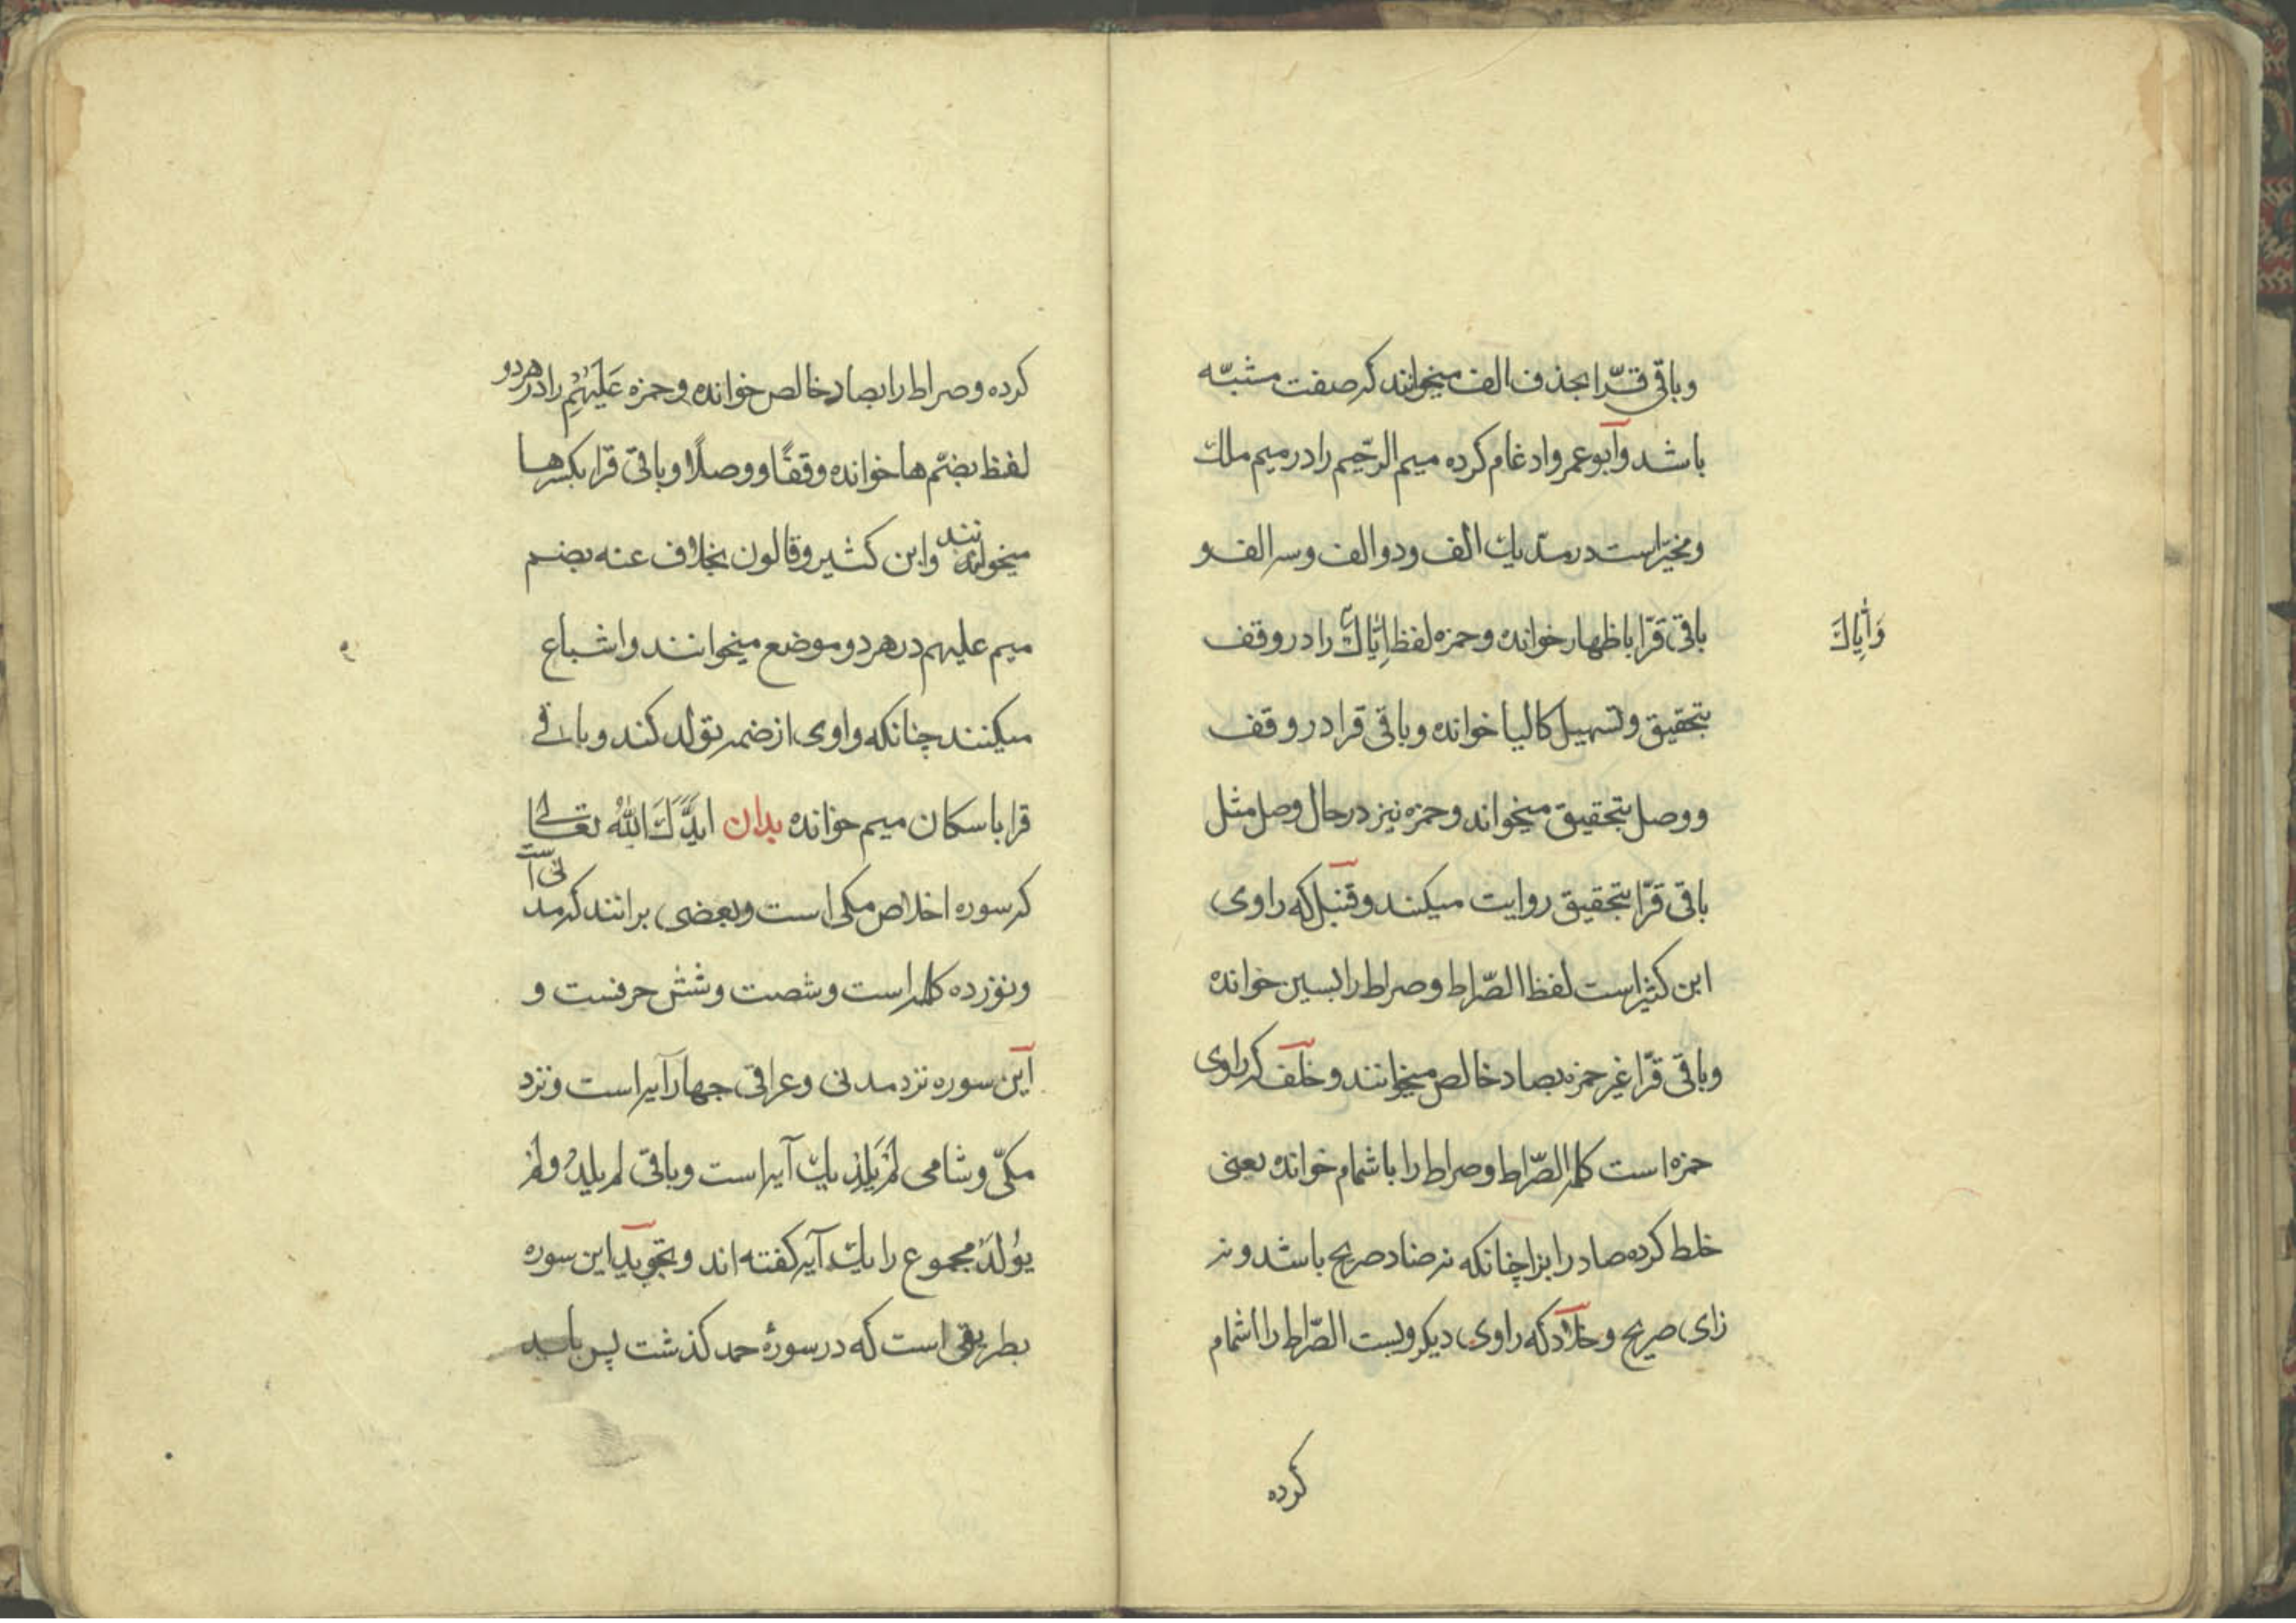 وباقی قرّا بحذف الف میخوانند که صفت مشبّه
باشد وابو عمرو ادغام کرده میم الرّحیم را در میم ملك
ومخیّر است در مدّ یك الف ودو الف وسه الف و
باقی قَرّا باظهار خوانده وحمزه لفظ اِیّاكَ را در وقف
وَاِیاكَ
بتحقیق وتسهیل کالیا خوانده وباقی قرا در وقف
ووصل بتحقیق میخواند وحمزه نیز در حال وصل مثل
باقی قرّا بتحقیق روایت میکنند وقنبل که راوی
ابن کثیر است لفظ الصّراط وصراط را بسین خوانده
وباقی قرّا غیر حمزه بصاد خالص میخوانند وخلف که راوی
حمزه است کلمه الصّراط وصراط را باشمام خوانده یعنی
خلط کرده صاد را بزا چنانکه نه صاد صریح باشد ونه
زای صریح وخلّاد که راوی دیکر ویست الصّراط را اشمام
کرده
کرده وصراط را بصاد خالص خوانده وحمزه عَلَیْهُمِ را در هر دو
لفظ بضمّ ها خوانده وقفًا ووصلًا وباقی قرا بکسر ها
میخوانند وابن کثیر وقالون بخلاف عنه بضم
میم علیهم در هر دو موضع میخوانند واشباع
میکنند چنانکه واوی از ضمه تولد کند وباقی
قرا باسکان میم خوانده بدان ایدَّكَ اللهُ تعالی
که سوره اخلاص مکی است وبعضی برانند که مدنی است
ونوزده کلمه است وشصت وشش حرفست و
این سوره نزد مدنی وعراقی چهار آیه است ونزد
مکّی وشامی لَمْ یَلِدْ یك آیه است وباقی لم یلدْ ولَمْ
یُولَدْ مجموع را یك آیه کفته اند وتجوید این سوره
بطریقی است که در سورهٔ حمد کذشت پس باید